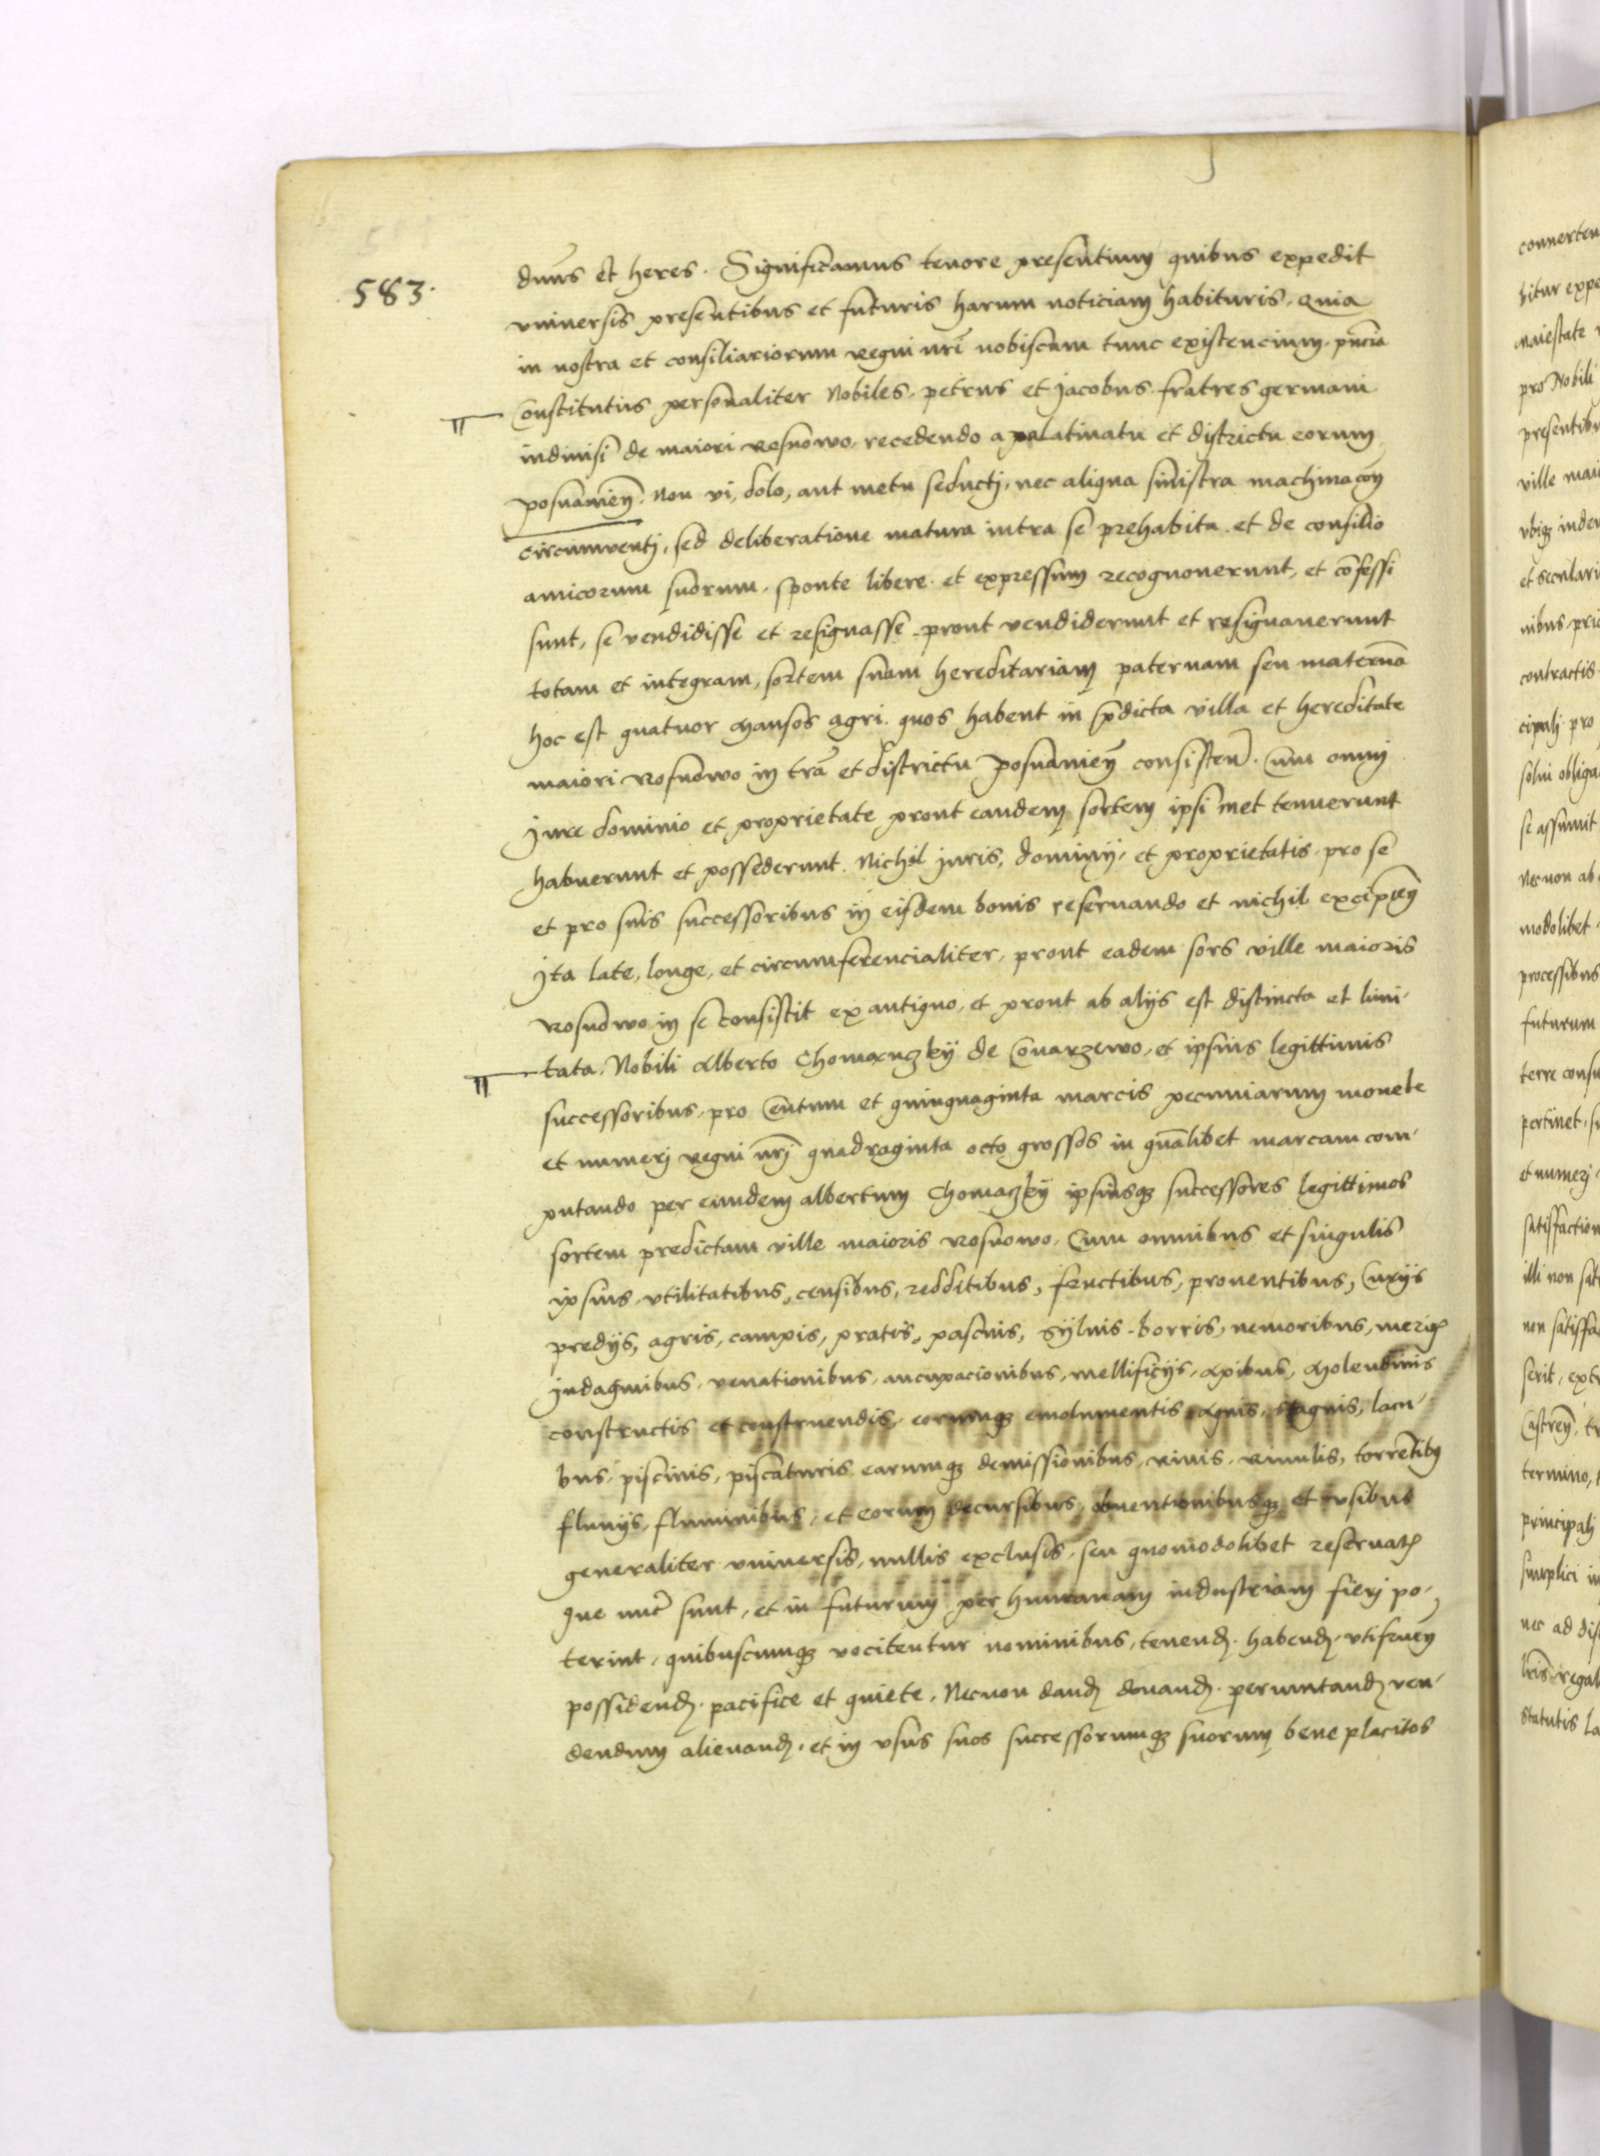 583.
dnus et heres. Significamus tenore presentium quibus expedit
vniversis presentibus et futuris harum noticiam habituris. Quia
in nostra et consiliariorum regni nri nobiscum tunc existencium. pncia
Constitutus personaliter Nobiles. petrus et Jacobus fratres germani
indiuisi de maiori Rosnowo, recedendo a palatinatu et districtu eorum
posnanien. Non vi, dolo, aut metu seductj, nec aliqua sinistra machinacon
circumventj, sed deliberatione matura intra se prehabita. et de consilio
amicorum suorum. sponte libere. et expressum recognouerunt, et confessi
sunt, se vendidisse et resignasse. prout vendiderunt et resignauerunt
totam et integram, sortem suam hereditariam paternam seu materna
hoc est quatuor Mansos agri. quos habent in predicta villa et hereditate
maiori Rosnowo in tra et districtu Posnanien consisten. Cum omni
Jure dominio et proprietate prout eandem sortem ipsi met tenuerunt
habuerunt et possederunt. Nichil Juris, dominij, et proprietatis. pro se
et pro suis successoribus in eisdem bonis reseruando et nichil excipien
Jta late, longe, et circumferencialiter, prout eadem sors ville maioris
Rosnowo in se consistit ex antiquo, et prout ab alijs est distincta et limi-
tata. Nobili Alberto Chomanczky de Conarzewo, et ipsius legittimis
successoribus, pro Centum et quinquaginta marcis pecuniarum monete
et numerj regni nrj quadraginta octo grossos in qualibet marcam com-
putando per eundem albertum Chomaczky ipsiusq successores legittimos
sortem predictam ville maioris Rosnowo. Cum omnibus et singulis
ipsius vtilitatibus, censibus, redditibus, fructibus, prouentibus, Curijs
predijs, agris, campis, pratis, pascuis, Syluis. borris, nemoribus, mericis
Jndaginibus. venationibus. aucupacionibus, mellificijs, Apibus, Molendinis
constructis et construendis, eorumq emolumentis Aquis, stagnis, lacu-
bus, piscinis, piscaturis earumq demissionibus, riuis, riuulis, torrentibus
fluuijs, fluminibus, et eorum decursibus, obuentionibusq et vsibus
generaliter vniuersis, nullis exclusis, seu quomodolibet reseruatis
que nunc sunt, et in futurum per humanam industriam fierj po-
terint, quibuscumq vocitentur nominibus, tenend. habend, vtifruen
possidend. pacifice et quiete. Necnon dand donand. permutand ven-
dendum alienand. et in vsus suos successorumq suorum bene placitos